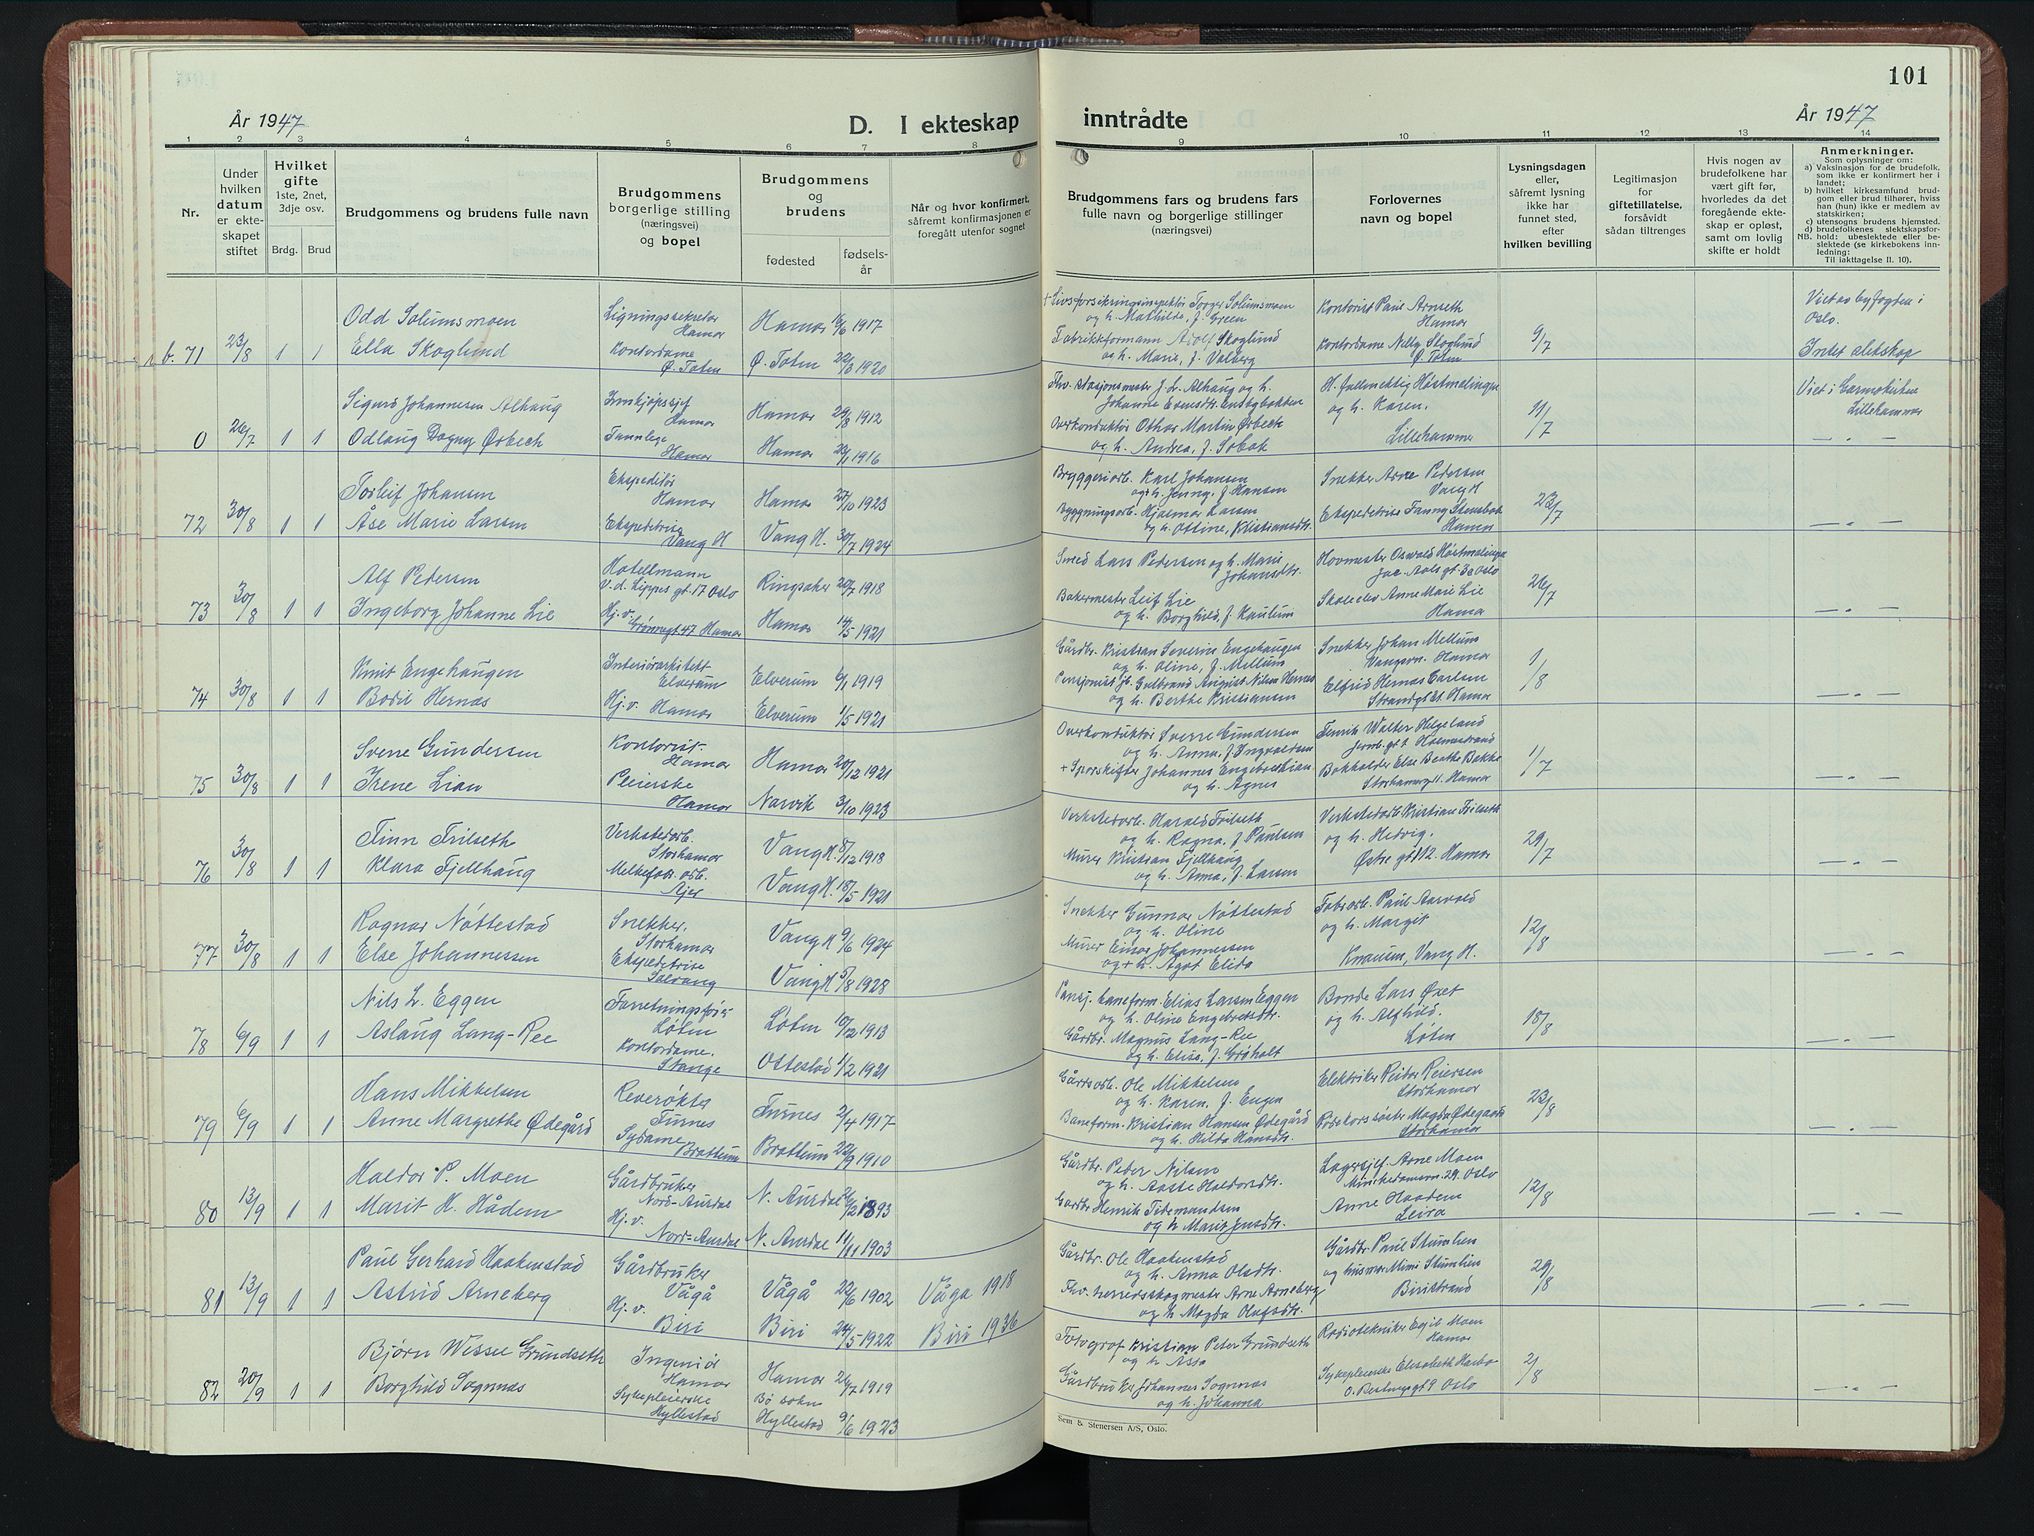 101
År 1947
D. I ekteskap
inntrådte
År 1947
1 2 3 4 5 6 7 8 9 10 11 12 13 14
Nr.
Under hvilken datum er ekteskapet stiftet
Hvilket gifte
1ste, 2net, 3dje osv.
Brdg. Brud
Brudgommens og brudens fulle navn
Brudgommens
borgerlige stilling
(næringsvei)
og bopel
Brudgommens
og
brudens
fødested
fødsels-
år
Når og hvor konfirmert,
såfremt konfirmasjonen er
foregått utenfor sognet
Brudgommens fars og brudens fars
fulle navn og borgerlige stillinger
(næringsvei)
Forlovernes
navn og bopel
Lysningsdagen
eller,
såfremt lysning
ikke har
funnet sted,
efter
hvilken bevilling
Legitimasjon
for
giftetillatelse,
forsåvidt
sådan tiltrenges
Hvis nogen av
brudefolkene har
vært gift før,
hvorledes da det
foregående ekte-
skap er opløst,
samt om lovlig
skifte er holdt
Anmerkninger.
Som oplysninger om:
a) Vaksinasjon for de brudefolk, som ikke er konfirmert her i landet;
b) hvilket kirkesamfund brudgom eller brud tilhører, hviss han (hun) ikke er medlem av statskirken;
c) utensogns brudens hjemsted.
d) brudefolkenes slektskapsforhold:
NB. ubeslektede eller beslektede (se kirkebokens innledning:
Til iakttagelse II. 10).
b. 71 23/8 1 1
Odd Solumsmoen
Ligningssekretær Hamar
Hamar 16/6 1917
+ Livsforsikringsinspektør Torger Solumsmoen
og h. Mathilde, f. Green
Kontorist Paul Arnseth
Hamar
9/7
Viet av byfogden i
Oslo.
Ella Skoglund
Kontordame
Ø. Toten
Ø. Toten 22/3 1920
Fabrikkformann Adolf Skoglund
og h. Marie, f. Valberg
Kontordame Nelly Skoglund
Ø. Toten
Intet slektskap
0 26/7 1 1
Sigurd Johannesen Alhaug
Innkjøpssjef
Hamar
Hamar 29/8 1912
Fhv. stasjonsmester J. L. Alhaug og h.
H. fullmektig Høstmælingen
og h. Karen.
Lillehammer
11/7
Viet i Garmokirken
Lillehammer
Odlaug Dagny Ørbech
Tannlege
Hamar
Hamar 1916
Overkonduktør Othar Martin Ørbech
og h. Andrea, f. Sobak
— " —
72 30/8 1 1
Torleif Johansen
Ekspeditør
Hamar
Hamar 27/10 1923
Bryggeriarb. Karl Johansen
og h. Jenny, f. Hansen
Snekker Arne Pedersen
Vang H
23/7
Åse Marie Larsen
Ekspeditrise
Vang H
Vang H. 30/7 1924
Bygningsarb. Hjalmar Larsen
og h. Ottine, Kristiansdtr.
Ekspeditrise Fanny Stensbak
Hamar
— " —
73 30/8 1 1
Alf Pedersen
Hotellmann
V. d. Lippes gt. 17 Oslo
Ringsaker 20/7 1918
Smed Lars Pedersen og h. Marie
Johansdtr.
Hovmester Oswald Høstmælingen
Jac. Aals gt. 30 Oslo
26/7
Ingeborg Johanne Lie
Hj. v.
Grønnegt. 47 Hamar
Hamar 14/5 1921
Bakermester Leif Lie
og h. Borghild, f. Kaulum
Skoleelev Anne Marie Lie
Hamar
— " —
74 30/8 1 1
Knut Engehaugen
Interiørarkitekt
Elverum
Elverum 6/1 1919
Gårdbr. Kristian Severin Engehaugen
og h. Oline, f. Mellum
Snekker Johan Mellum
Vangsvn. Hamar
1/8
Bodil Hernæs
Hj. v. Hamar
Elverum 1/5 1921
Pensjonist Gulbrand August Nilsen Hernæs
og h. Berthe Kristiansen
Elfrid Hernæs Carlsen
Strandgt. Hamar
— " —
75 30/8 1 1
Svene Gundersen
Kontorist
Hamar
Hamar 20/12 1921
Overkonduktør Sverre Gundersen
og h. Anna, f. Ingvaldsen
Fenrik Walter Helgeland
Jernb. gt. 1 Holmestrand
1/7
Irene Lian
Pleierske
Hamar
Narvik 3/10 1923
+ Sporskifter Johannes Engebret Lian
og h. Agnes
Bokholder Else Beathe Bakke
Storhamargt. 11. Hamar
— " —
76 30/8 1 1
Finn Frilseth
Verkstedarb.
Storhamar
Vang H. 8/12 1918
Verkstedarb. Harald Frilseth
og h. Ragna, f. Paulsen
Verkstedarb. Kristian Frilseth
og h. Hedvig.
Østre gt. 112. Hamar
29/7
Klara Fjellhaug
Melkefabr. arb.
Ajer
Vang H. 18/5 1921
Murer Kristian Fjellhaug
og h. Anna, f. Larsen
— " —
77 30/8 1 1
Ragnar Nøttestad
Snekker.
Storhamar
Vang H 9/6 1924
Snekker Gunnar Nøttestad
og h. Oline
Fabr. arb. Paul Aasvald
og h. Margit
Knausen, Vang H.
12/8
Else Johannessen
Ekspeditrise
Vang H 5/8 1928
Murer Einar Johannessen
og h. Agot Elida
— " —
78 6/9 1 1
Nils L. Eggen
Forretningsfører
Løten
Løten 10/12 1913
Pensj. baneform. Elias Larsen Eggen
og h. Oline Engebretsdtr.
Bonde Lars Øxet
og h. Alfhild.
Løten
18/8
Aslaug Lang-Ree
Kontordame.
Stange
Ottestad 1/2 1921
Gårdbr. Magnus Lang-Ree
og h. Elise, f. Grøholt
— " —
79 6/9 1 1
Hans Mikkelsen
Reverøkter
Furnes
Furnes 2/4 1917
Gårdsarb. Ole Mikkelsen
og h. Karen, f. Engen
Elektriker Reidar Reiersen
Storhamar
23/8
Anne Margrethe Ødegård
Sydame
Brøttum
Brøttum 22/9 1910
Baneform. Kristian Hansen Ødegård
og h. Hilda Hansdtr.
Rødekorssøster Magda Ødegaard
Storhamar
— " —
80 13/9 1 1
Haldor P. Moen
Gårdbruker
Nord-Aurdal
N. Aurdal 26/2 1893
Gårdbr. Peder Nilsen
og h. Aaste Haldorsdtr.
Lagersjef Arne Moen
Munkedamsvn. 29. Oslo
12/8
Marit H. Hådem
Hj. v.
Nord-Aurdal
N. Aurdal 11/11 1903
Gardbr. Henrik Tidemandsen
og h. Marit Jensdtr.
Anne Haadem
Leira
— " —
81 13/9 1 1
Paul Gerhard Haakenstad
Gårdbruker
Vågå
Vågå 22/6 1902
Våga 1918
Gårdbr. Ole Haakenstad
og h. Anna Olsdtr.
Gårdbr. Paul Stumlien
og husmor Mimi Stumlien
Biristrand
29/8
Astrid Arneberg
Hj. v.
Biri
Biri 24/5 1922
Biri 1936
Fhv. herredsskogmester Arne Arneberg
og h. Magda Olufsdtr.
— " —
82 20/9 1 1
Bjørn Wessel Grundseth
Ingeniør
Hamar
Hamar 26/7 1919
Fotograf Kristian Peter Grundseth
og h. Asta
Radiotekniker Egil Moen
Hamar
2/8
Borghild Sognnæs
Sykepleierske
Hyllestad
Bø sokn
Hyllestad 9/6 1923
Gårdbruker Johannes Sognnæs
og h. Johanna
Sykepleierske Elisabeth Harbo
Oslo
— " —
Sem & Stenersen A/S, Oslo.